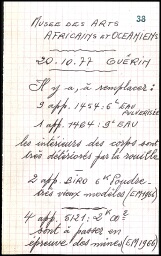 38
MUSEE DES ARTS
AFRICAINS ET OCEANIENS
20.10.77 GUÉRIN
Il y a, à remplacer:
3 app. 1454: 6ˡ EAU
PULVÉRISÉE
1 app. 1464: 9ˡ EAU
les intérieurs des corps sont
très détériorés par la rouille
2 app. BIRO 6ᴷ Poudre
très vieux modèles (EM 1966)
4 app. 5121: 2ᴷ CO²
sont à passer en
épreuve des mines (EM 1966)